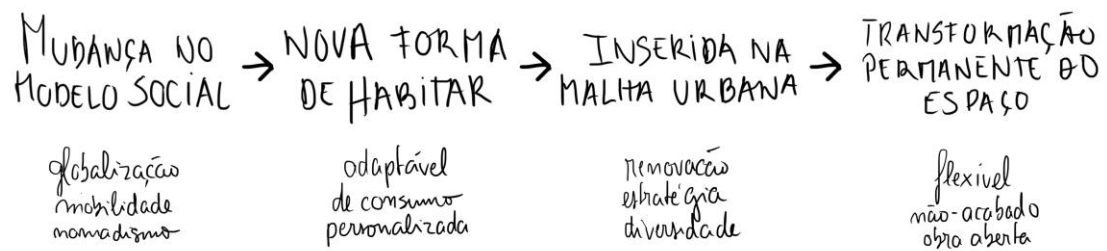 MUDANÇA NO
MODELO SOCIAL
→ NOVA FORMA
DE HABITAR
→ INSERIDA NA
MALHA URBANA
→ TRANSFORMAÇÃO
PERMANENTE DO
ESPAÇO
globalização
mobilidade
nomadismo
adaptável
de consumo
personalizada
renovação
estratégia
diversidade
flexível
não-acabado
obra aberta